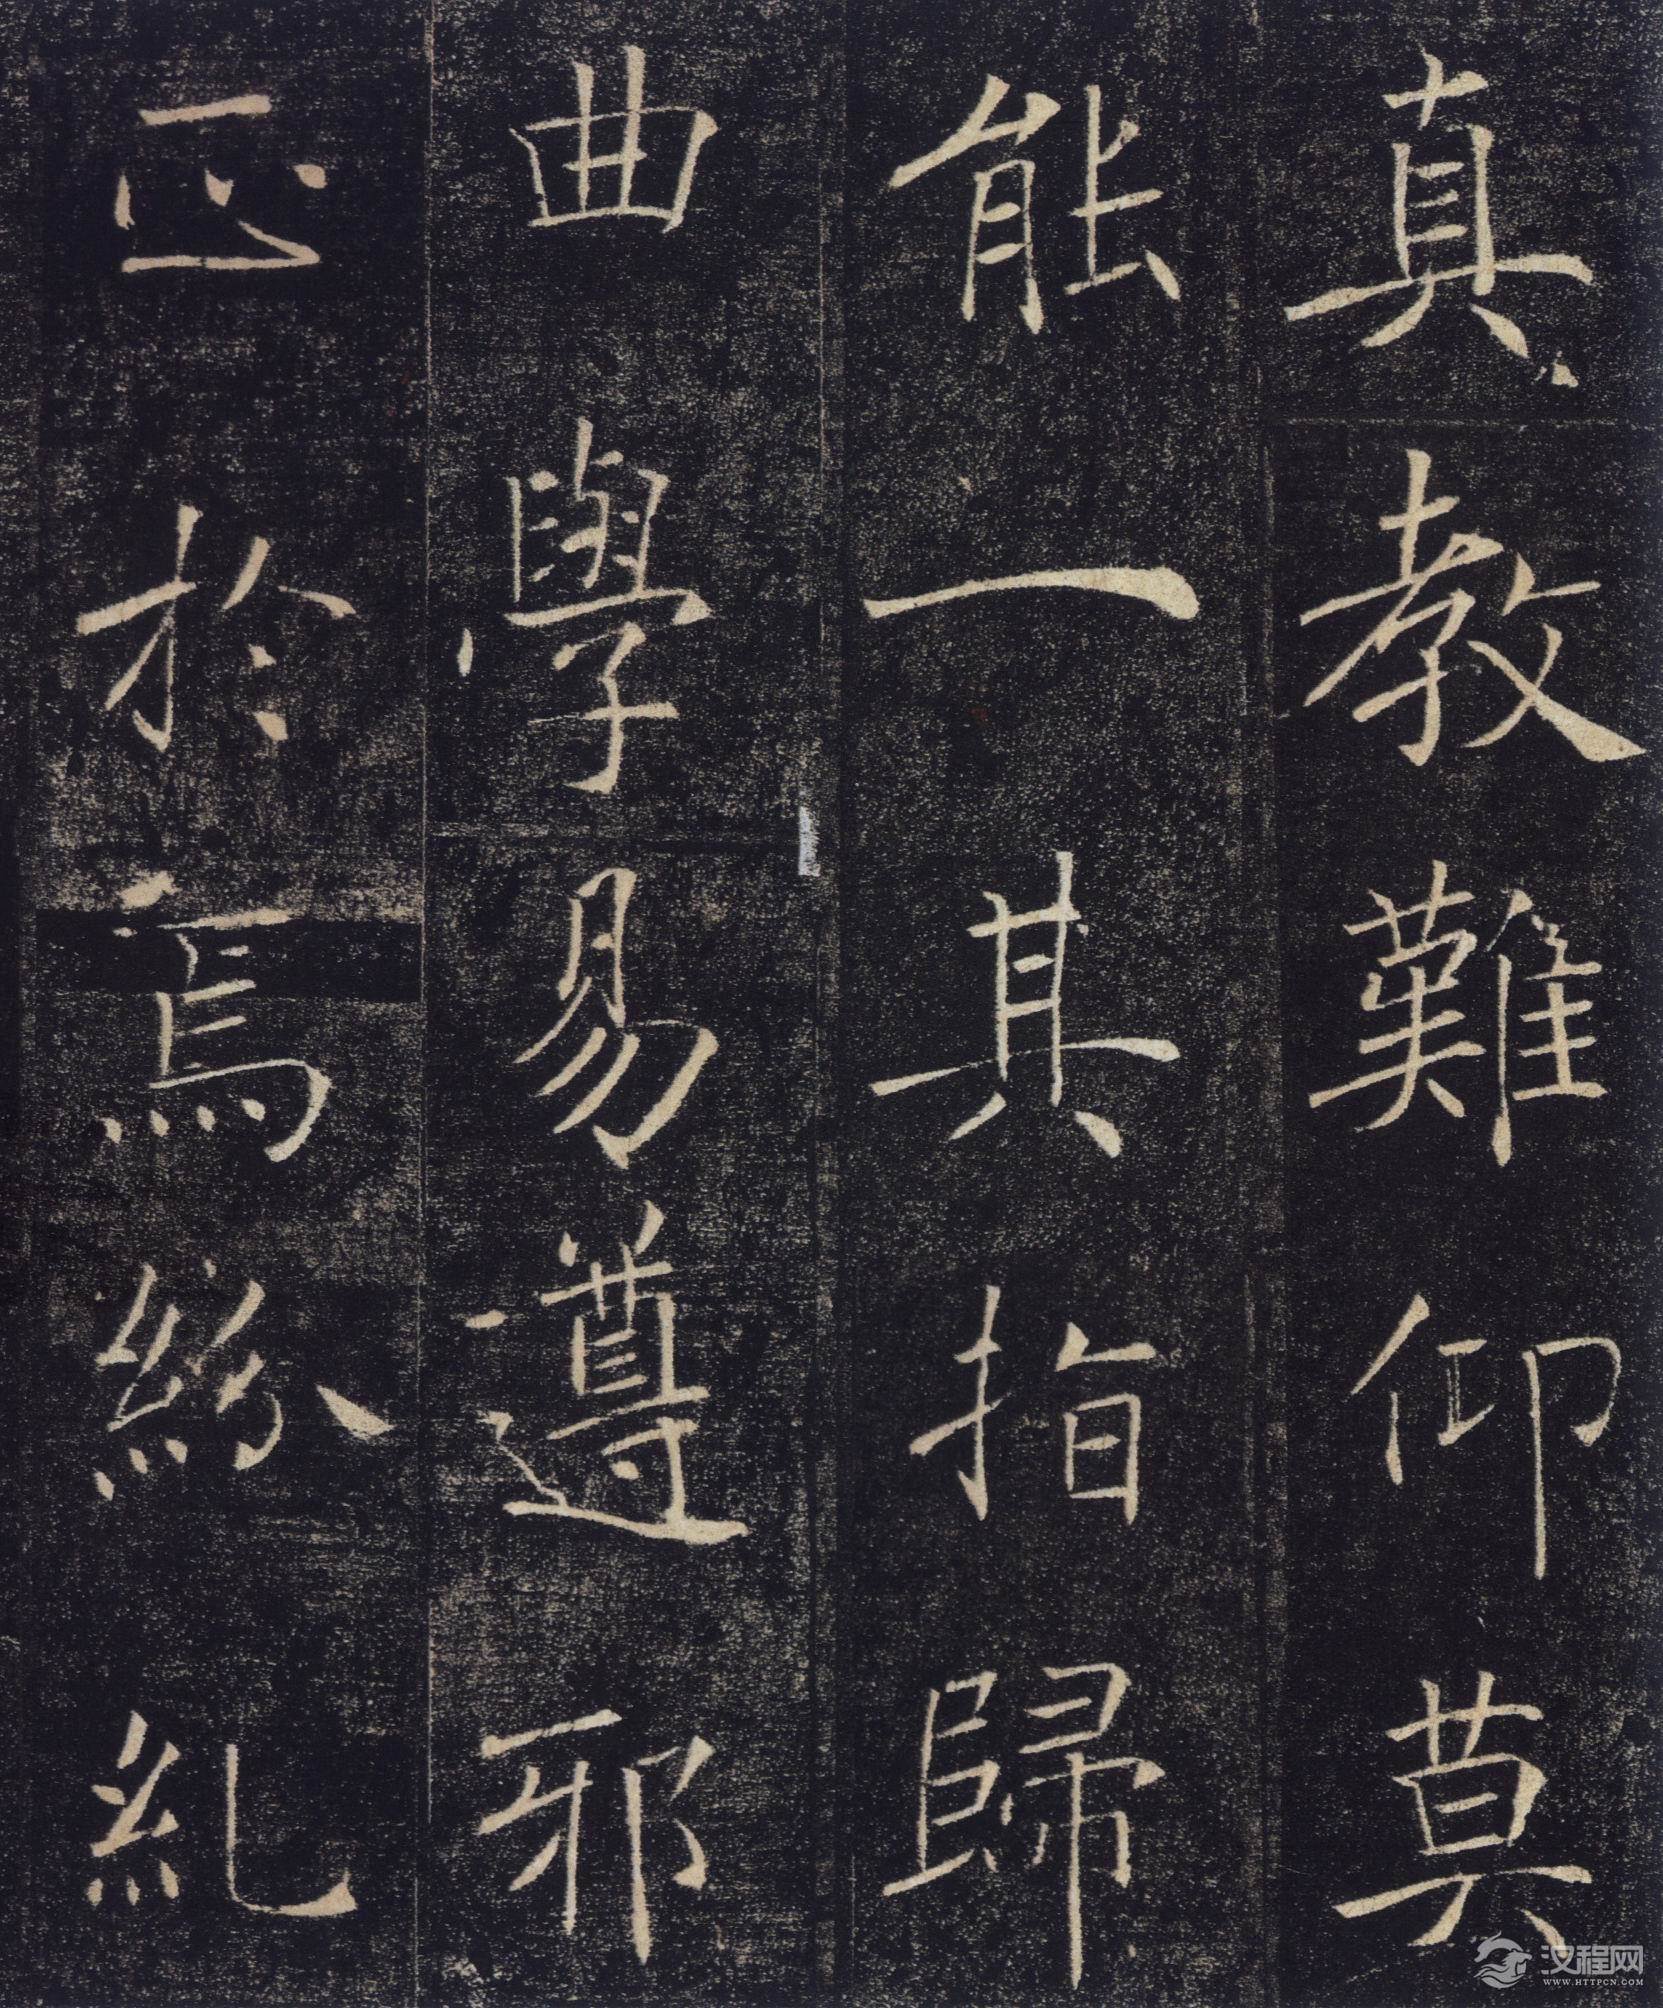 真教難仰莫
能一其指歸
曲學易遵邪
正於焉紛糺
汉程网
WWW.HTTPCN.COM